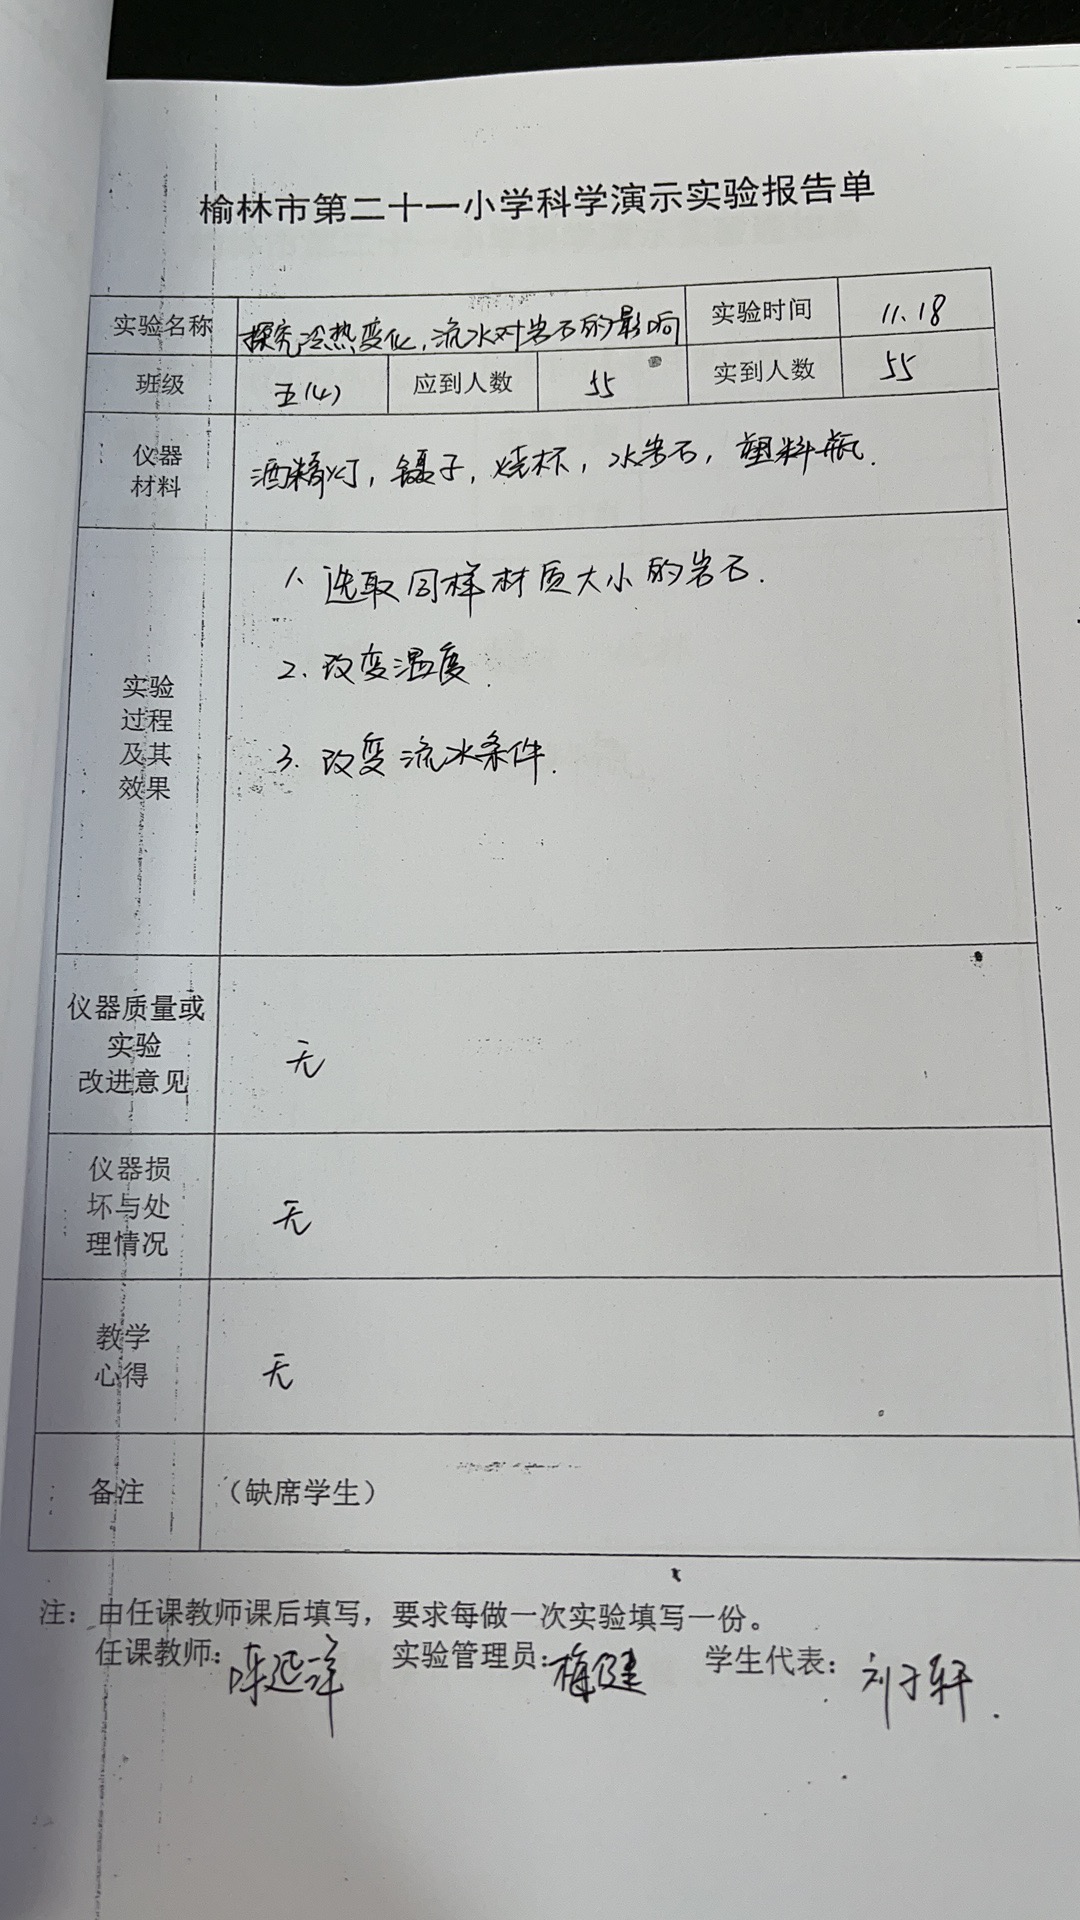 榆林市第二十一小学科学演示实验报告单
实验名称 探究冷热变化,流水对岩石的影响 实验时间 11.18
班级 五(4) 应到人数 55 实到人数 55
仪器
材料
酒精灯,镊子,烧杯,水岩石,塑料瓶.
实验
过程
及其
效果
1. 选取同样材质大小的岩石.
2. 改变温度.
3. 改变流水条件.
仪器质量或
实验
改进意见
无
仪器损
坏与处
理情况
无
教学
心得
无
备注 (缺席学生)
注：由任课教师课后填写，要求每做一次实验填写一份。
任课教师: 陈延洋 实验管理员: 梅健 学生代表: 刘子轩.